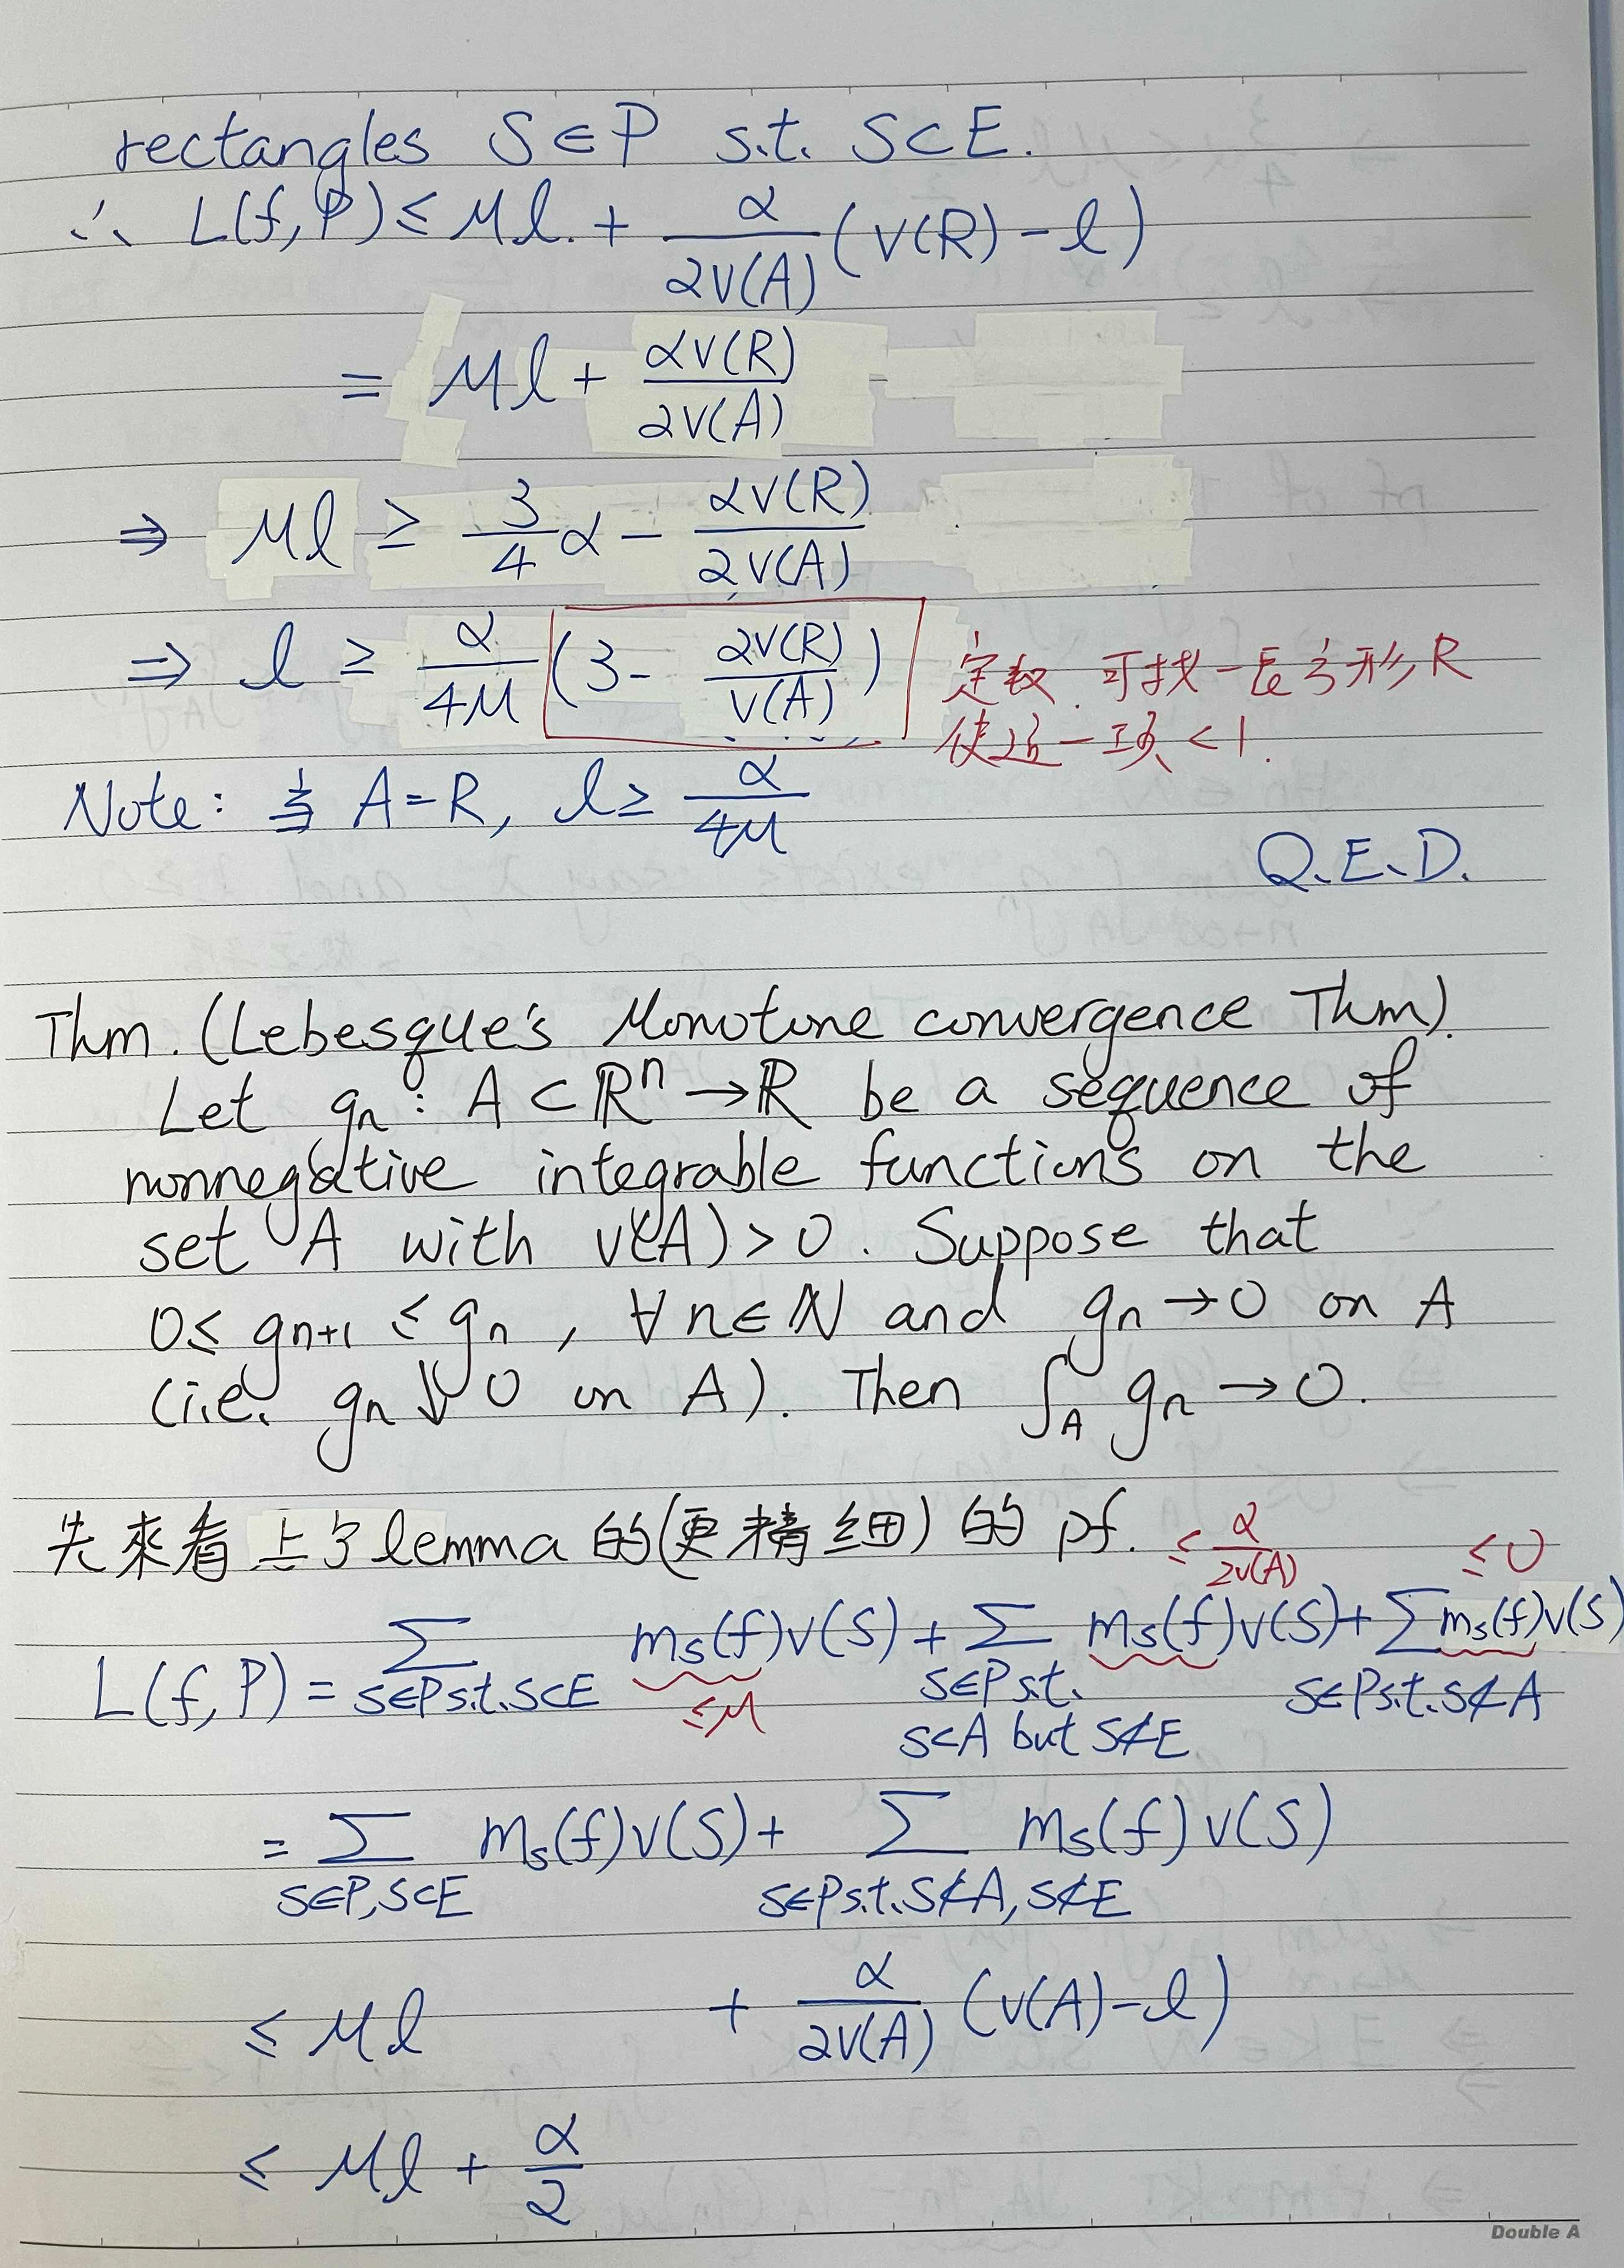 rectangles S∈P s.t. S⊂E.
∴ L(f,P) ≤ Ml. + α/2V(A) (V(R)-l)
= Ml + αV(R)/2V(A)
⇒ Ml ≥ 3/4 α - αV(R)/2V(A)
⇒ l ≥ α/4M (3 - 2V(R)/V(A)) 定数. 可找一長方形R
使這一項 < 1.
Note: 当 A=R, l ≥ α/4M
Q.E.D.
Thm. (Lebesque's Monotone convergence Thm).
Let gₙ : A ⊂ ℝⁿ → ℝ be a sequence of
nonnegative integrable functions on the
set A with v(A) > 0. Suppose that
0 ≤ gₙ₊₁ ≤ gₙ, ∀n∈ℕ and gₙ → 0 on A
(i.e. gₙ ↓ 0 on A). Then ∫_A gₙ → 0.
先來看上了lemma 的(更精细)的 pf. ≤ α/2v(A) ≤ 0
L(f,P) = Σ mₛ(f)v(S) + Σ mₛ(f)v(S) + Σ mₛ(f)v(S)
S∈P s.t. S⊂E ≤M S∈P s.t. S∈P s.t. S⊄A
S⊂A but S⊄E
= Σ mₛ(f)v(S) + Σ mₛ(f)v(S)
S∈P, S⊂E S∈P s.t. S⊄A, S⊄E
≤ Ml + α/2V(A) (v(A)-l)
≤ Ml + α/2
Double A